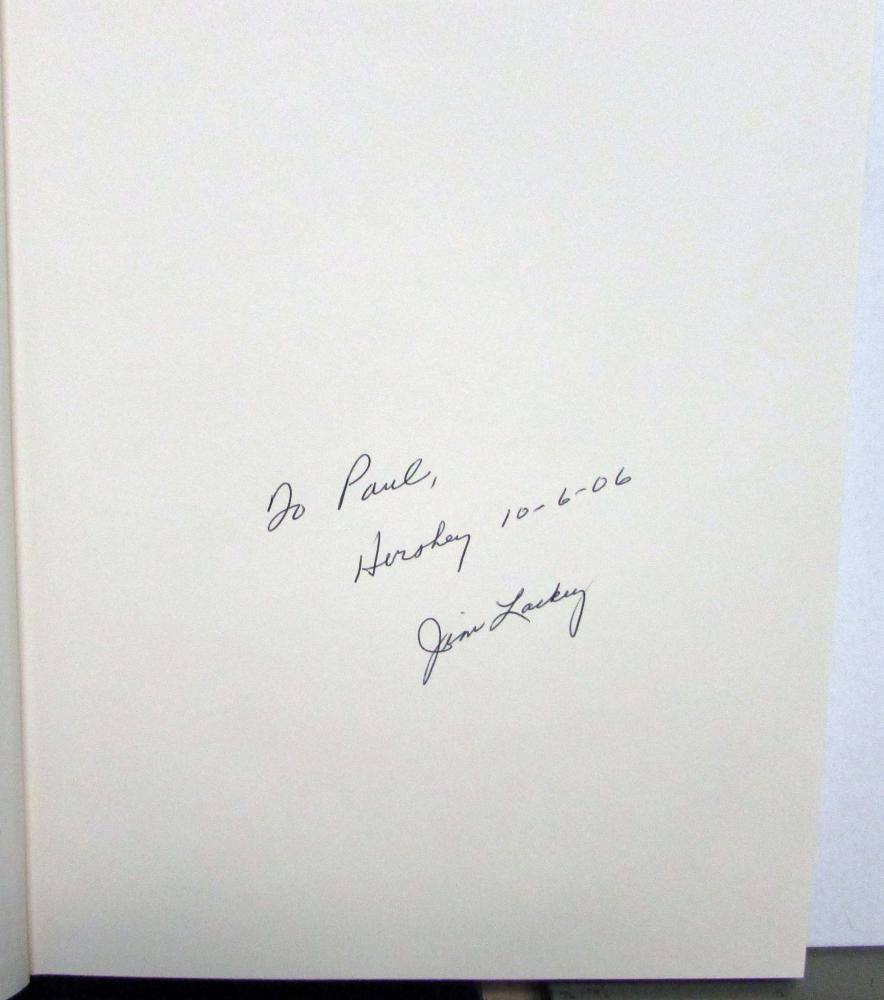 To Paul,
Hershey 10-6-06
Jim Lackey